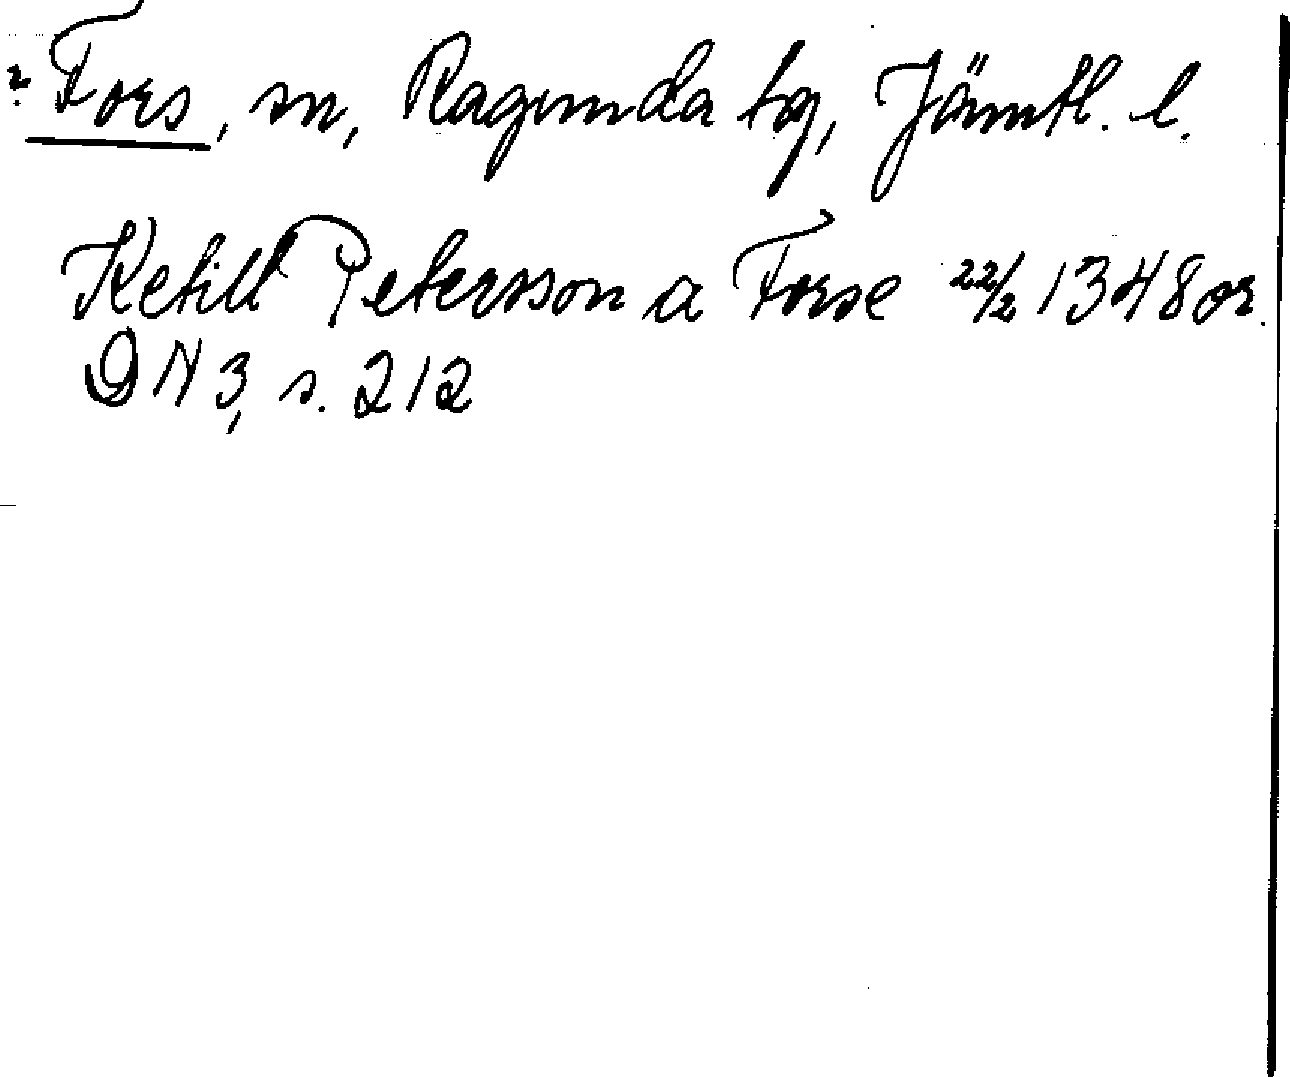 ? Fors, sn, Ragunda tg, Jämtl. l.
Ketill Petersson a Forse 22/2 1348 or.
DN 3, s. 212